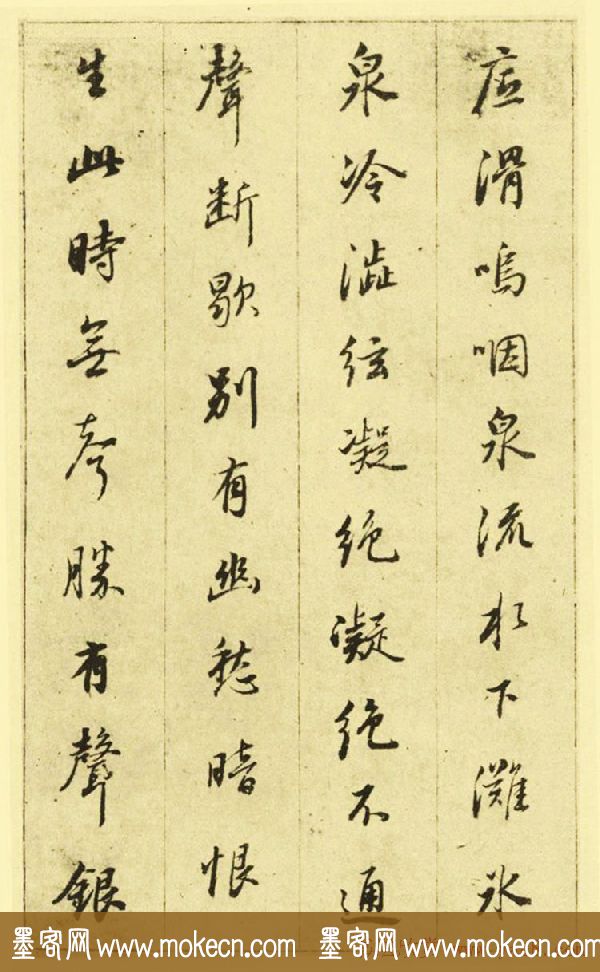 底滑嗚咽泉流水下灘氷
泉冷澁絃凝絶凝絶不通
聲断歇别有幽愁暗恨
生此時無声勝有聲銀
墨客网 www.mokecn.com 墨客网 www.mokecn.com